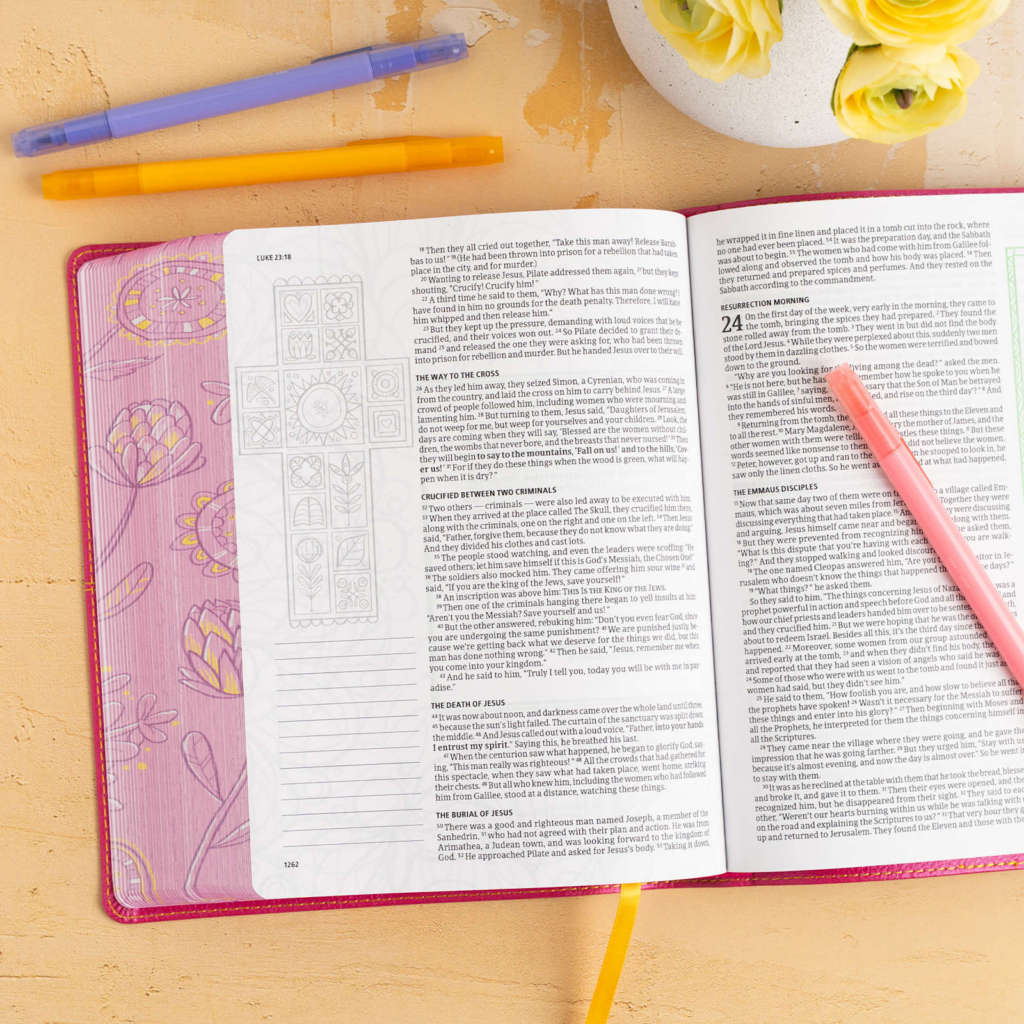 LUKE 23:18
18 Then they all cried out together, "Take this man away! Release Barab-
bas to us!" 19 (He had been thrown into prison for a rebellion that had taken
place in the city, and for murder.)
20 Wanting to release Jesus, Pilate addressed them again, 21 but they kept
shouting, "Crucify! Crucify him!"
22 A third time he said to them, "Why? What has this man done wrong? I
have found in him no grounds for the death penalty. Therefore, I will have
him whipped and then release him."
23 But they kept up the pressure, demanding with loud voices that he be
crucified, and their voices won out. 24 So Pilate decided to grant their de-
mand 25 and released the one they were asking for, who had been thrown
into prison for rebellion and murder. But he handed Jesus over to their will.
THE WAY TO THE CROSS
26 As they led him away, they seized Simon, a Cyrenian, who was coming in
from the country, and laid the cross on him to carry behind Jesus. 27 A large
crowd of people followed him, including women who were mourning and
lamenting him. 28 But turning to them, Jesus said, "Daughters of Jerusalem,
do not weep for me, but weep for yourselves and your children. 29 Look, the
days are coming when they will say, 'Blessed are the women without chil-
dren, the wombs that never bore, and the breasts that never nursed!' 30 Then
they will begin to say to the mountains, 'Fall on us!' and to the hills, 'Cov-
er us!' 31 For if they do these things when the wood is green, what will hap-
pen when it is dry?"
CRUCIFIED BETWEEN TWO CRIMINALS
32 Two others — criminals — were also led away to be executed with him.
33 When they arrived at the place called The Skull, they crucified him there,
along with the criminals, one on the right and one on the left. 34 Then Jesus
said, "Father, forgive them, because they do not know what they are doing."
And they divided his clothes and cast lots.
35 The people stood watching, and even the leaders were scoffing: "He
saved others; let him save himself if this is God's Messiah, the Chosen One!"
36 The soldiers also mocked him. They came offering him sour wine 37 and
said, "If you are the king of the Jews, save yourself!"
38 An inscription was above him: THIS IS THE KING OF THE JEWS.
39 Then one of the criminals hanging there began to yell insults at him:
"Aren't you the Messiah? Save yourself and us!"
40 But the other answered, rebuking him: "Don't you even fear God, since
you are undergoing the same punishment? 41 We are punished justly, be-
cause we're getting back what we deserve for the things we did, but this
man has done nothing wrong." 42 Then he said, "Jesus, remember me when
you come into your kingdom."
43 And he said to him, "Truly I tell you, today you will be with me in par-
adise."
THE DEATH OF JESUS
44 It was now about noon, and darkness came over the whole land until three,
45 because the sun's light failed. The curtain of the sanctuary was split down
the middle. 46 And Jesus called out with a loud voice, "Father, into your hands
I entrust my spirit." Saying this, he breathed his last.
47 When the centurion saw what happened, he began to glorify God, say-
ing, "This man really was righteous!" 48 All the crowds that had gathered for
this spectacle, when they saw what had taken place, went home, striking
their chests. 49 But all who knew him, including the women who had followed
him from Galilee, stood at a distance, watching these things.
THE BURIAL OF JESUS
50 There was a good and righteous man named Joseph, a member of the
Sanhedrin, 51 who had not agreed with their plan and action. He was from
Arimathea, a Judean town, and was looking forward to the kingdom of
God. 52 He approached Pilate and asked for Jesus's body. 53 Taking it down,
1262
he wrapped it in fine linen and placed it in a tomb cut into the rock, where
no one had ever been placed. 54 It was the preparation day, and the Sabbath
was about to begin. 55 The women who had come with him from Galilee fol-
lowed along and observed the tomb and how his body was placed. 56 Then
they returned and prepared spices and perfumes. And they rested on the
Sabbath according to the commandment.
RESURRECTION MORNING
24 On the first day of the week, very early in the morning, they came to
the tomb, bringing the spices they had prepared. 2 They found the
stone rolled away from the tomb. 3 They went in but did not find the body
of the Lord Jesus. 4 While they were perplexed about this, suddenly two men
stood by them in dazzling clothes. 5 So the women were terrified and bowed
down to the ground.
"Why are you looking for the living among the dead?" asked the men.
6 "He is not here, but he has remember how he spoke to you when he
was still in Galilee, 7 saying, ssary that the Son of Man be betrayed
into the hands of sinful men, ied, and rise on the third day'?" 8 And
they remembered his words.
9 Returning from the tomb, the d all these things to the Eleven and
to all the rest. 10 Mary Magdalene, ry the mother of James, and the
other women with them were telli stles these things. 11 But these
words seemed like nonsense to them did not believe the women.
12 Peter, however, got up and ran to the n he stooped to look in, he
saw only the linen cloths. So he went aw d at what had happened.
THE EMMAUS DISCIPLES
13 Now that same day two of them were on a village called Em-
maus, which was about seven miles from Jer Together they were
discussing everything that had taken place. 15 An
and arguing, Jesus himself came near and began long with them.
16 But they were prevented from recognizing him asked them,
"What is this dispute that you're having with each you are walk-
ing?" And they stopped walking and looked discour
18 The one named Cleopas answered him, "Are you itor in Je-
rusalem who doesn't know the things that happened days?"
19 "What things?" he asked them.
So they said to him, "The things concerning Jesus of Naza was a
prophet powerful in action and speech before God and all the
how our chief priests and leaders handed him over to be senten
and they crucified him. 21 But we were hoping that he was the o
about to redeem Israel. Besides all this, it's the third day since th
happened. 22 Moreover, some women from our group astounded
arrived early at the tomb, 23 and when they didn't find his body, the
and reported that they had seen a vision of angels who said he was
24 Some of those who were with us went to the tomb and found it just as
women had said, but they didn't see him."
25 He said to them, "How foolish you are, and how slow to believe all tha
the prophets have spoken! 26 Wasn't it necessary for the Messiah to suffer
these things and enter into his glory?" 27 Then beginning with Moses and
all the Prophets, he interpreted for them the things concerning himself in
all the Scriptures.
28 They came near the village where they were going, and he gave the
impression that he was going farther. 29 But they urged him, "Stay with us
because it's almost evening, and now the day is almost over." So he went in
to stay with them.
30 It was as he reclined at the table with them that he took the bread, blesse
and broke it, and gave it to them. 31 Then their eyes were opened, and the
recognized him, but he disappeared from their sight. 32 They said to eac
other, "Weren't our hearts burning within us while he was talking with u
on the road and explaining the Scriptures to us?" 33 That very hour they g
up and returned to Jerusalem. They found the Eleven and those with the